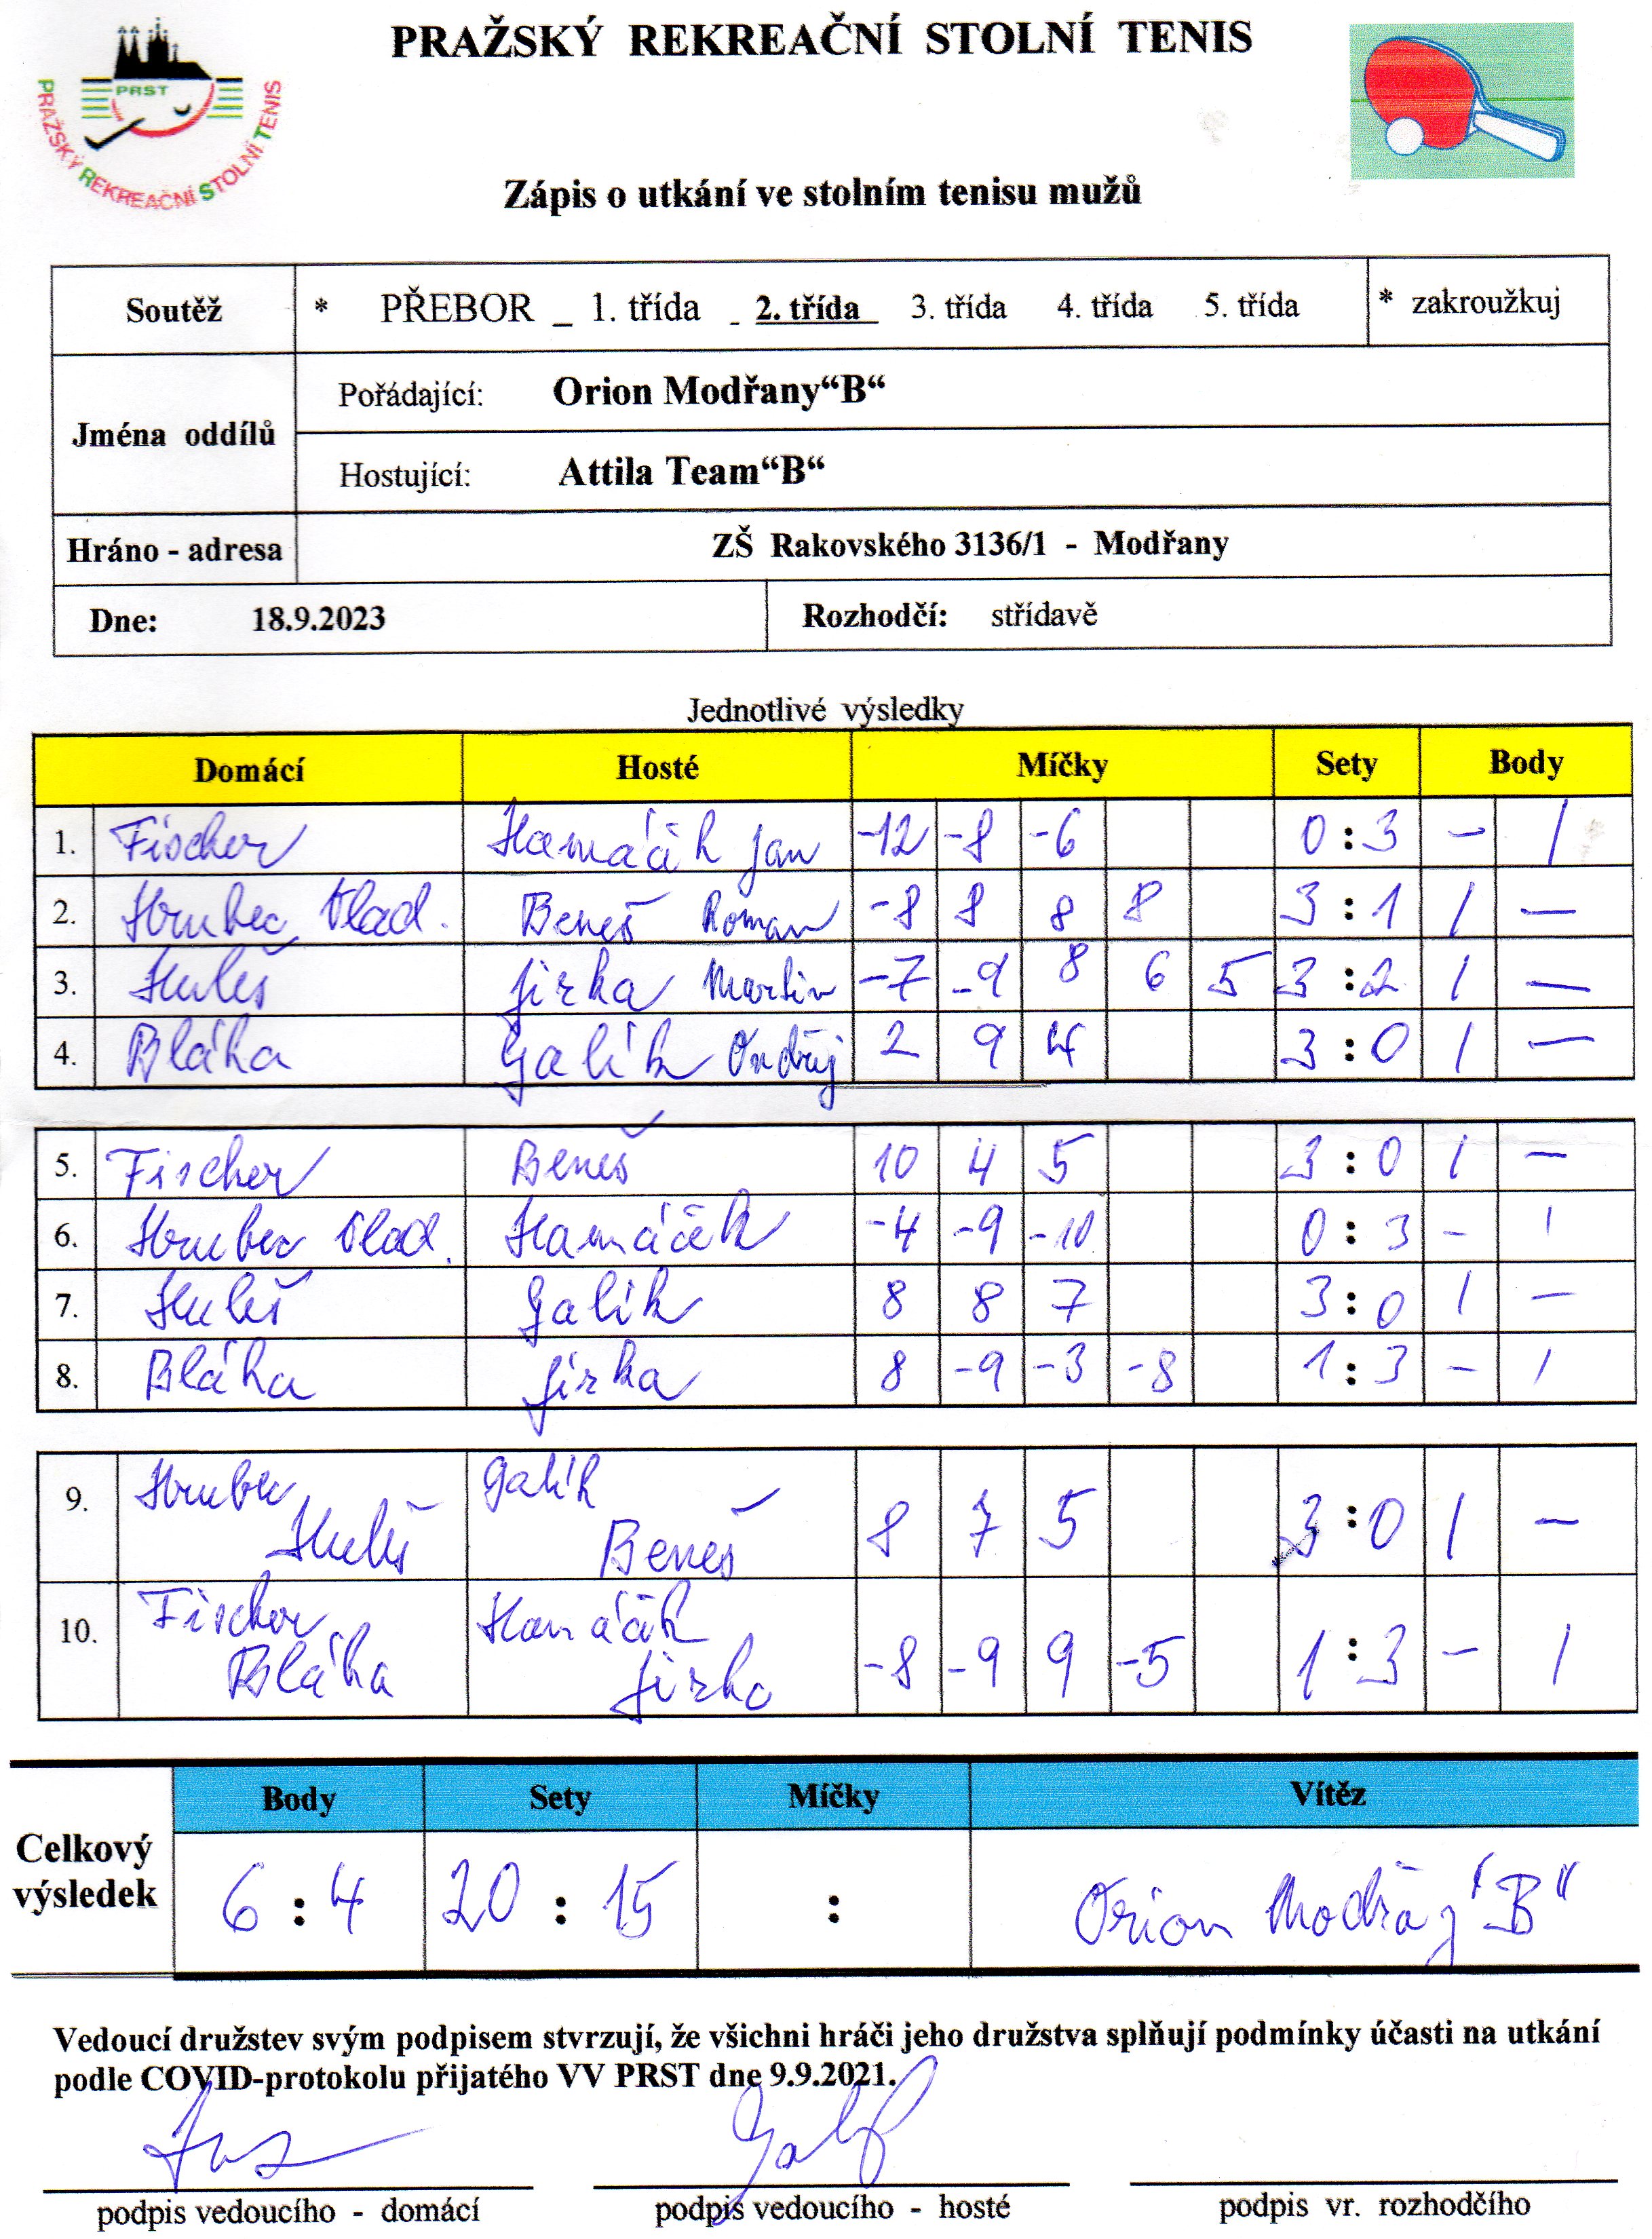 PRAŽSKÝ REKREAČNÍ STOLNÍ TENIS
PRST
PRAŽSKÝ REKREAČNÍ STOLNÍ TENIS
Zápis o utkání ve stolním tenisu mužů
Soutěž * PŘEBOR _ 1. třída - 2. třída 3. třída 4. třída 5. třída * zakroužkuj
Jména oddílů
Pořádající: Orion Modřany“B“
Hostující: Attila Team“B“
Hráno - adresa ZŠ Rakovského 3136/1 - Modřany
Dne: 18.9.2023 Rozhodčí: střídavě
Jednotlivé výsledky
Domácí Hosté Míčky Sety Body
1. Fischer Hamáčik Jan -12 -8 -6 0:3 - 1
2. Hrubec Vlad. Beneš Roman -8 8 8 8 3:1 1 -
3. Huleš Jirka Martin -7 -9 8 6 5 3:2 1 -
4. Bláha Galík Ondřej 2 9 4 3:0 1 -
5. Fischer Beneš 10 4 5 3:0 1 -
6. Hrubec Vlad. Hamáčik -4 -9 -10 0:3 - 1
7. Huleš Galík 8 8 7 3:0 1 -
8. Bláha Jirka 8 -9 -3 -8 1:3 - 1
9. Hrubec Galík
Huleš Beneš 8 7 5 3:0 1 -
10. Fischer Hamáčik
Bláha Jirka -8 -9 9 -5 1:3 - 1
Body Sety Míčky Vítěz
Celkový výsledek 6:4 20:15 : Orion Modřany "B"
Vedoucí družstev svým podpisem stvrzují, že všichni hráči jeho družstva splňují podmínky účasti na utkání
podle COVID-protokolu přijatého VV PRST dne 9.9.2021.
podpis vedoucího - domácí podpis vedoucího - hosté podpis vr. rozhodčího